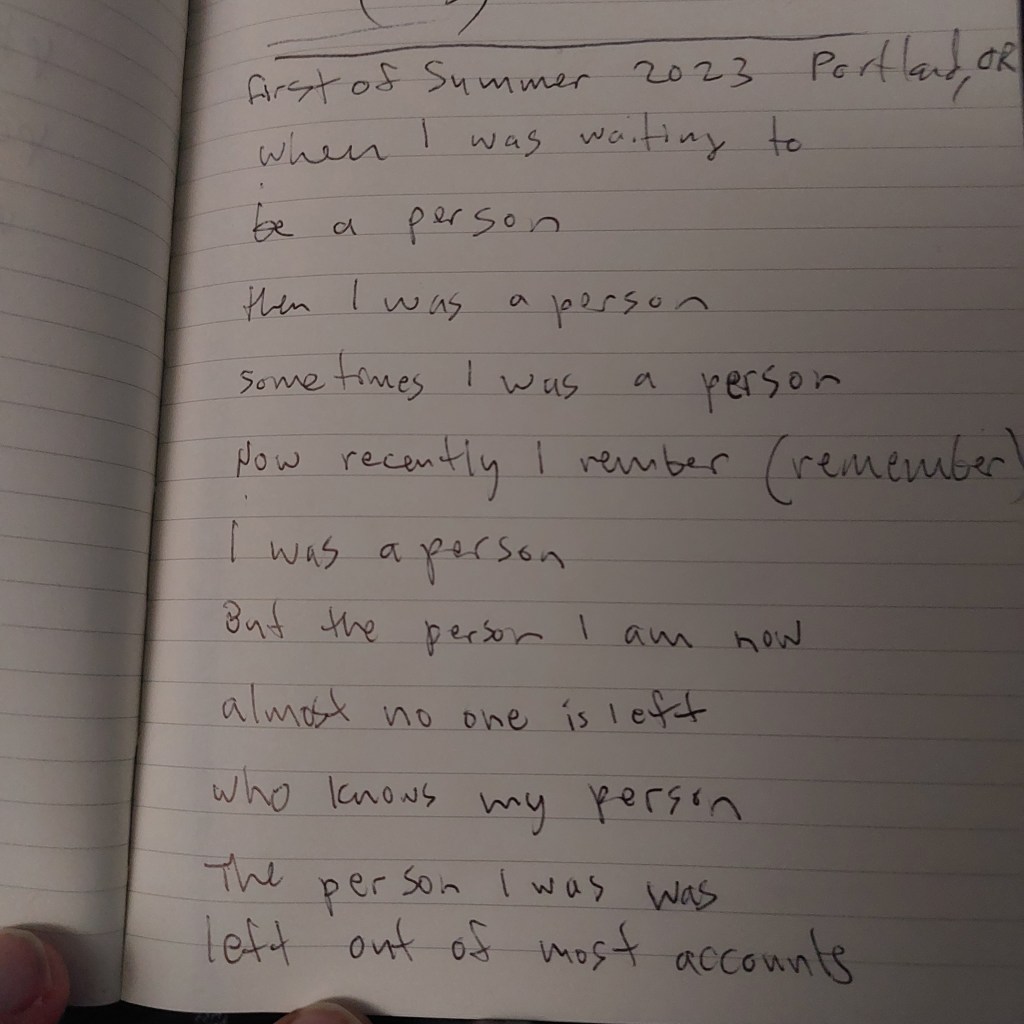 first of Summer 2023 Portland, OR
when I was waiting to
be a person
then I was a person
sometimes I was a person
Now recently I rember (remember)
I was a person
But the person I am now
almost no one is left
who knows my person
The person I was was
left out of most accounts